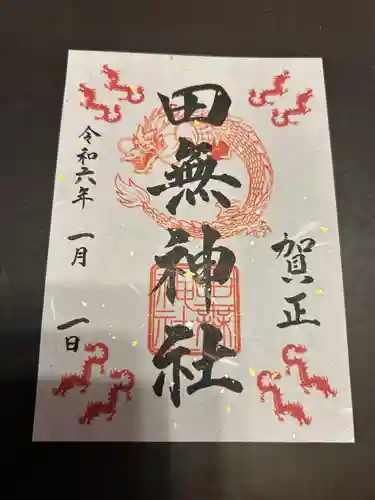 賀正
田無神社
令和六年 一月 一日